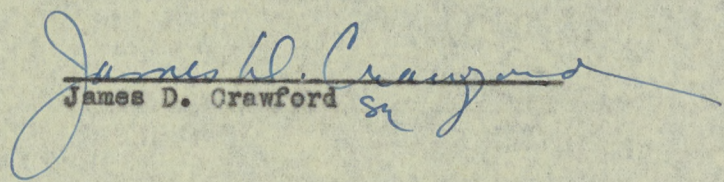 James D. Crawford
James D. Crawford